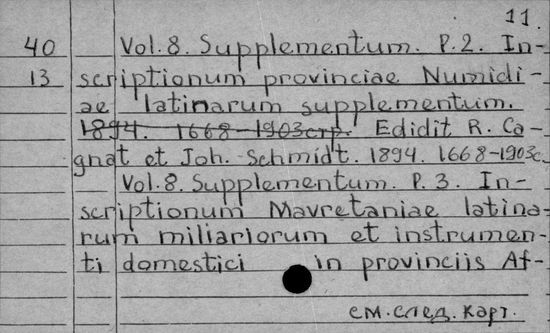 11.
40 Vol. 8. Supplementum. P. 2. In-
13 scriptionum provinciae Numidi-
ae latinarum supplementum.
1894. 1668-1903стр. Edidit R. Ca-
gnat et Joh. Schmidt. 1894. 1668-1903с.
Vol. 8. Supplementum. P. 3. In-
scriptionum Mavretaniae latina-
rum miliariorum et instrumen-
ti domestici in provinciis Af-
см. след. карт.